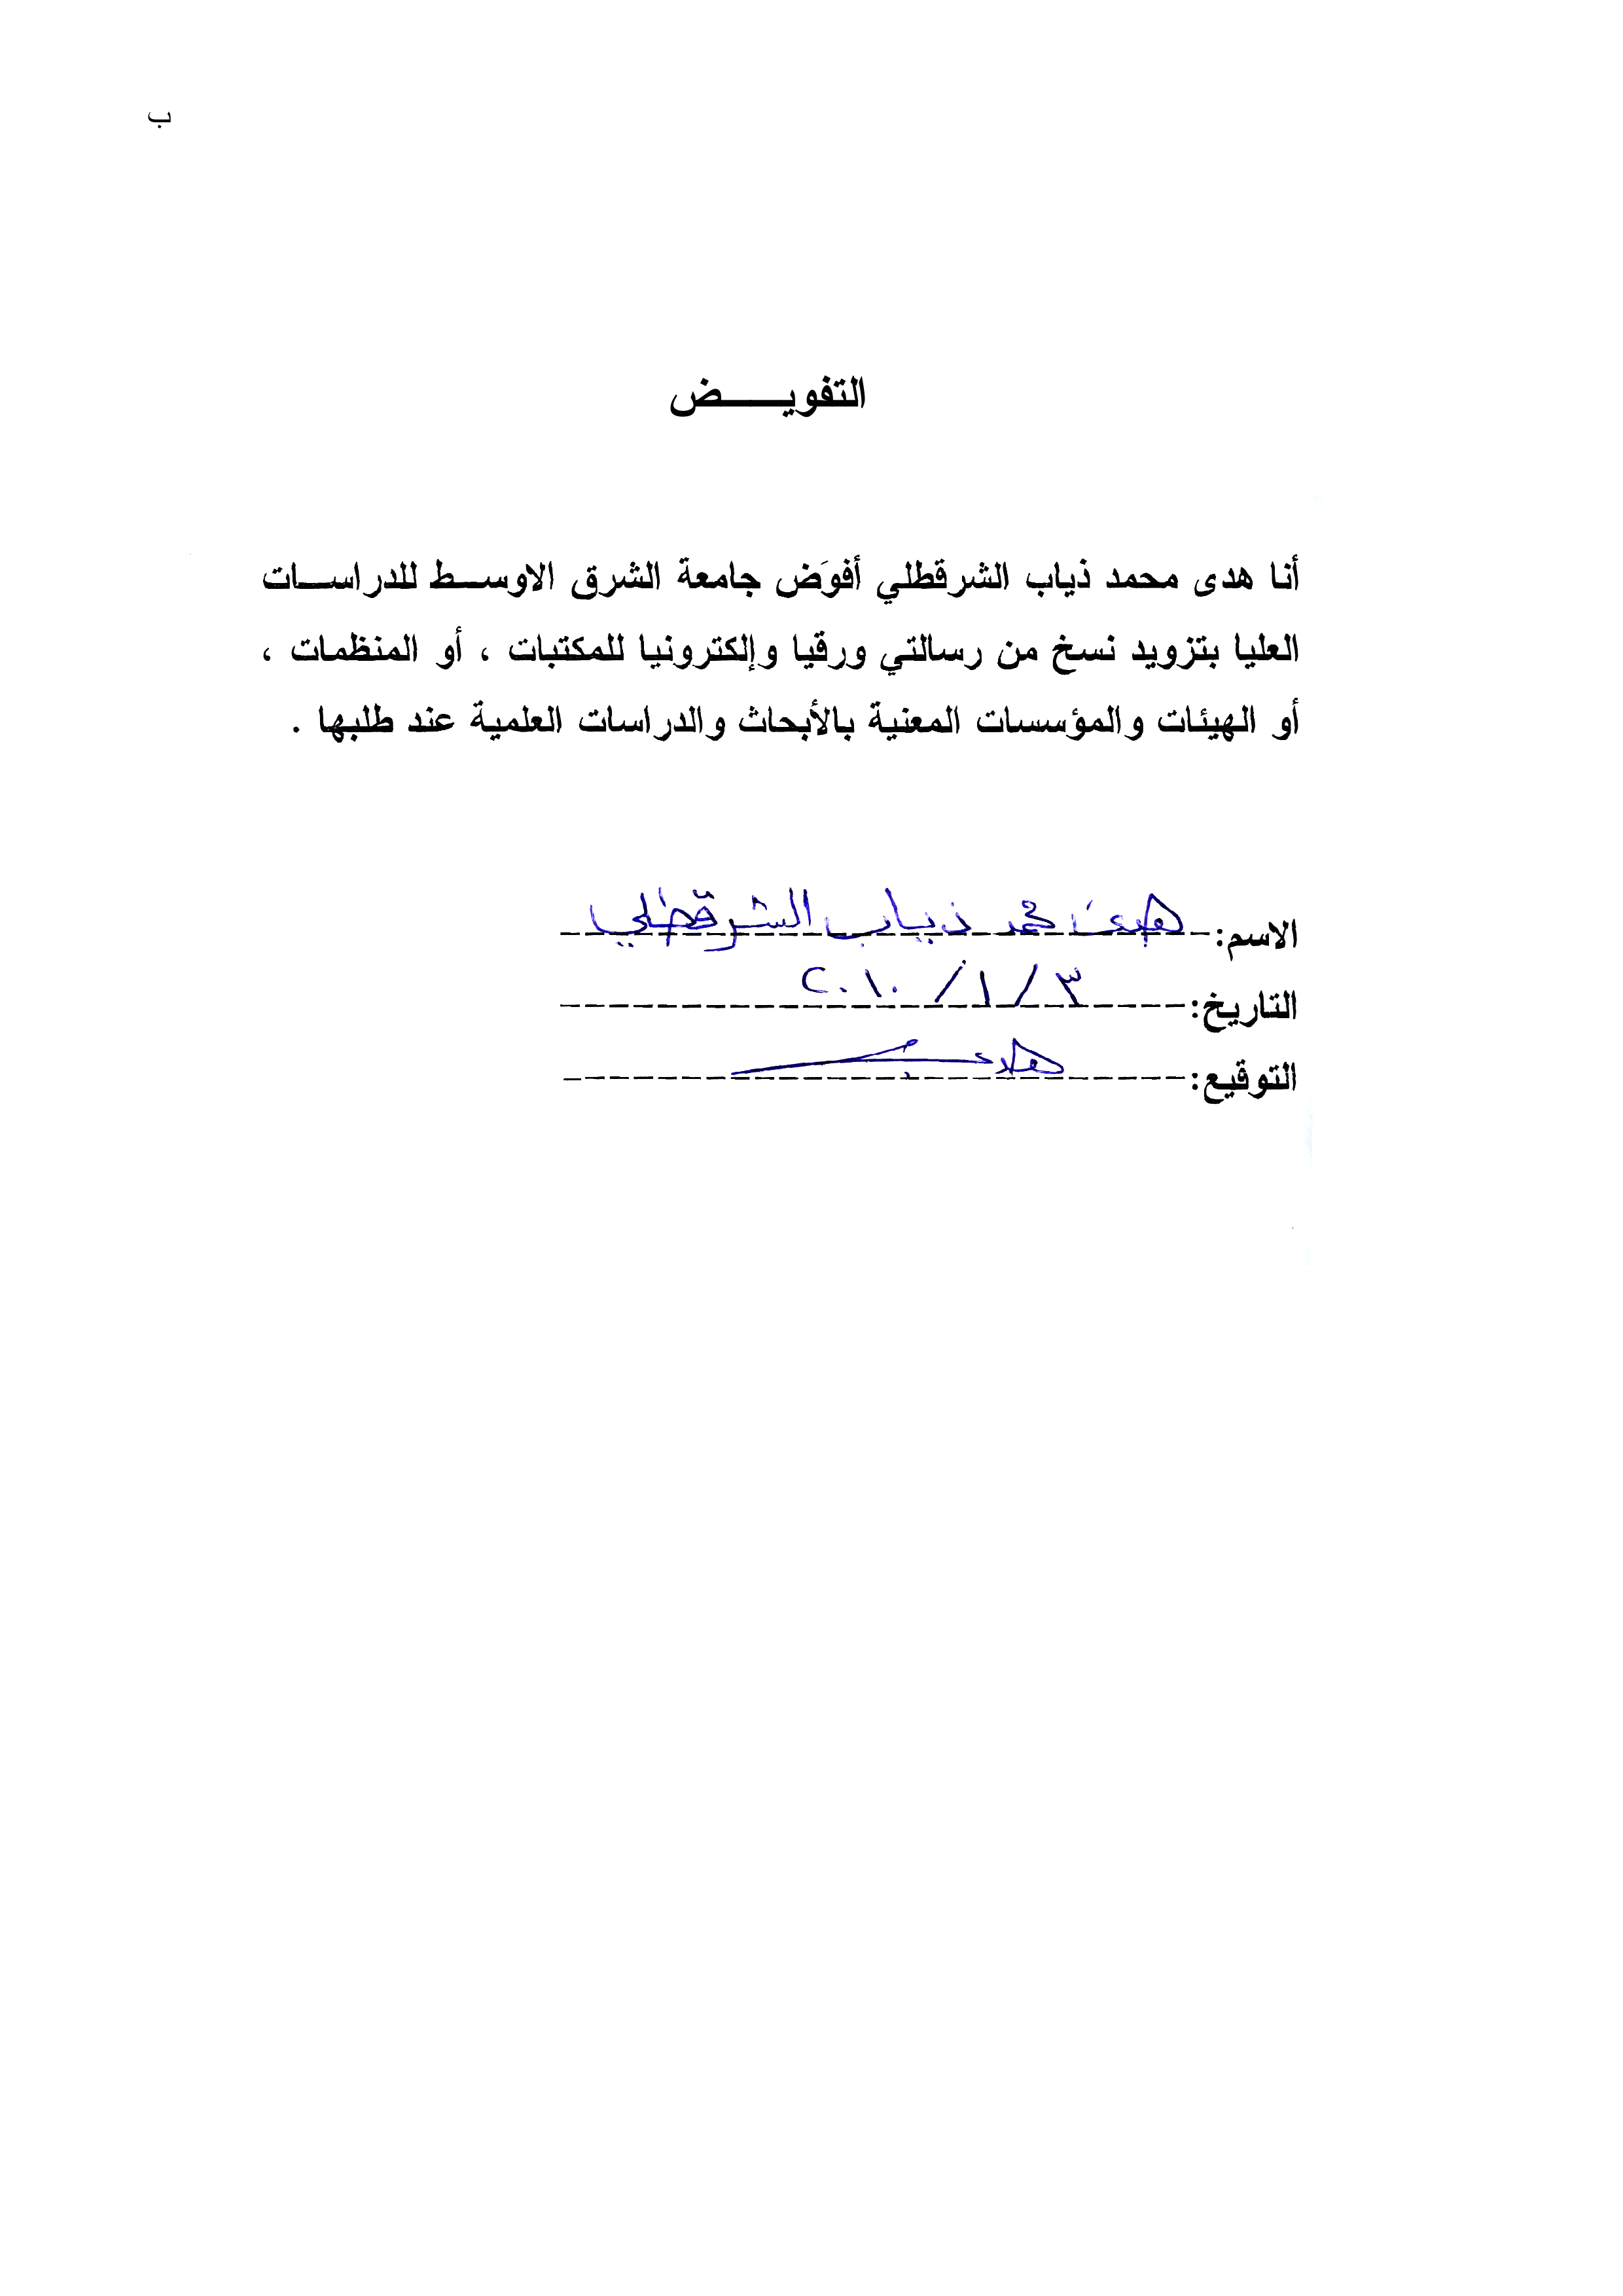 ب
التفويـــــض
أنا هدى محمد ذياب الشرقطلي أفوَض جامعة الشرق الاوســط للدراســات
العليا بتزويد نسخ من رسالتي ورقيا وإلكترونيا للمكتبات ، أو المنظمات ،
أو الهيئات والمؤسسات المعنية بالأبحاث والدراسات العلمية عند طلبها .
الاسم: هدى محمد ذياب الشرقطلي
التاريخ: ٣ / ١ / ٢٠١٠
التوقيع: هدى